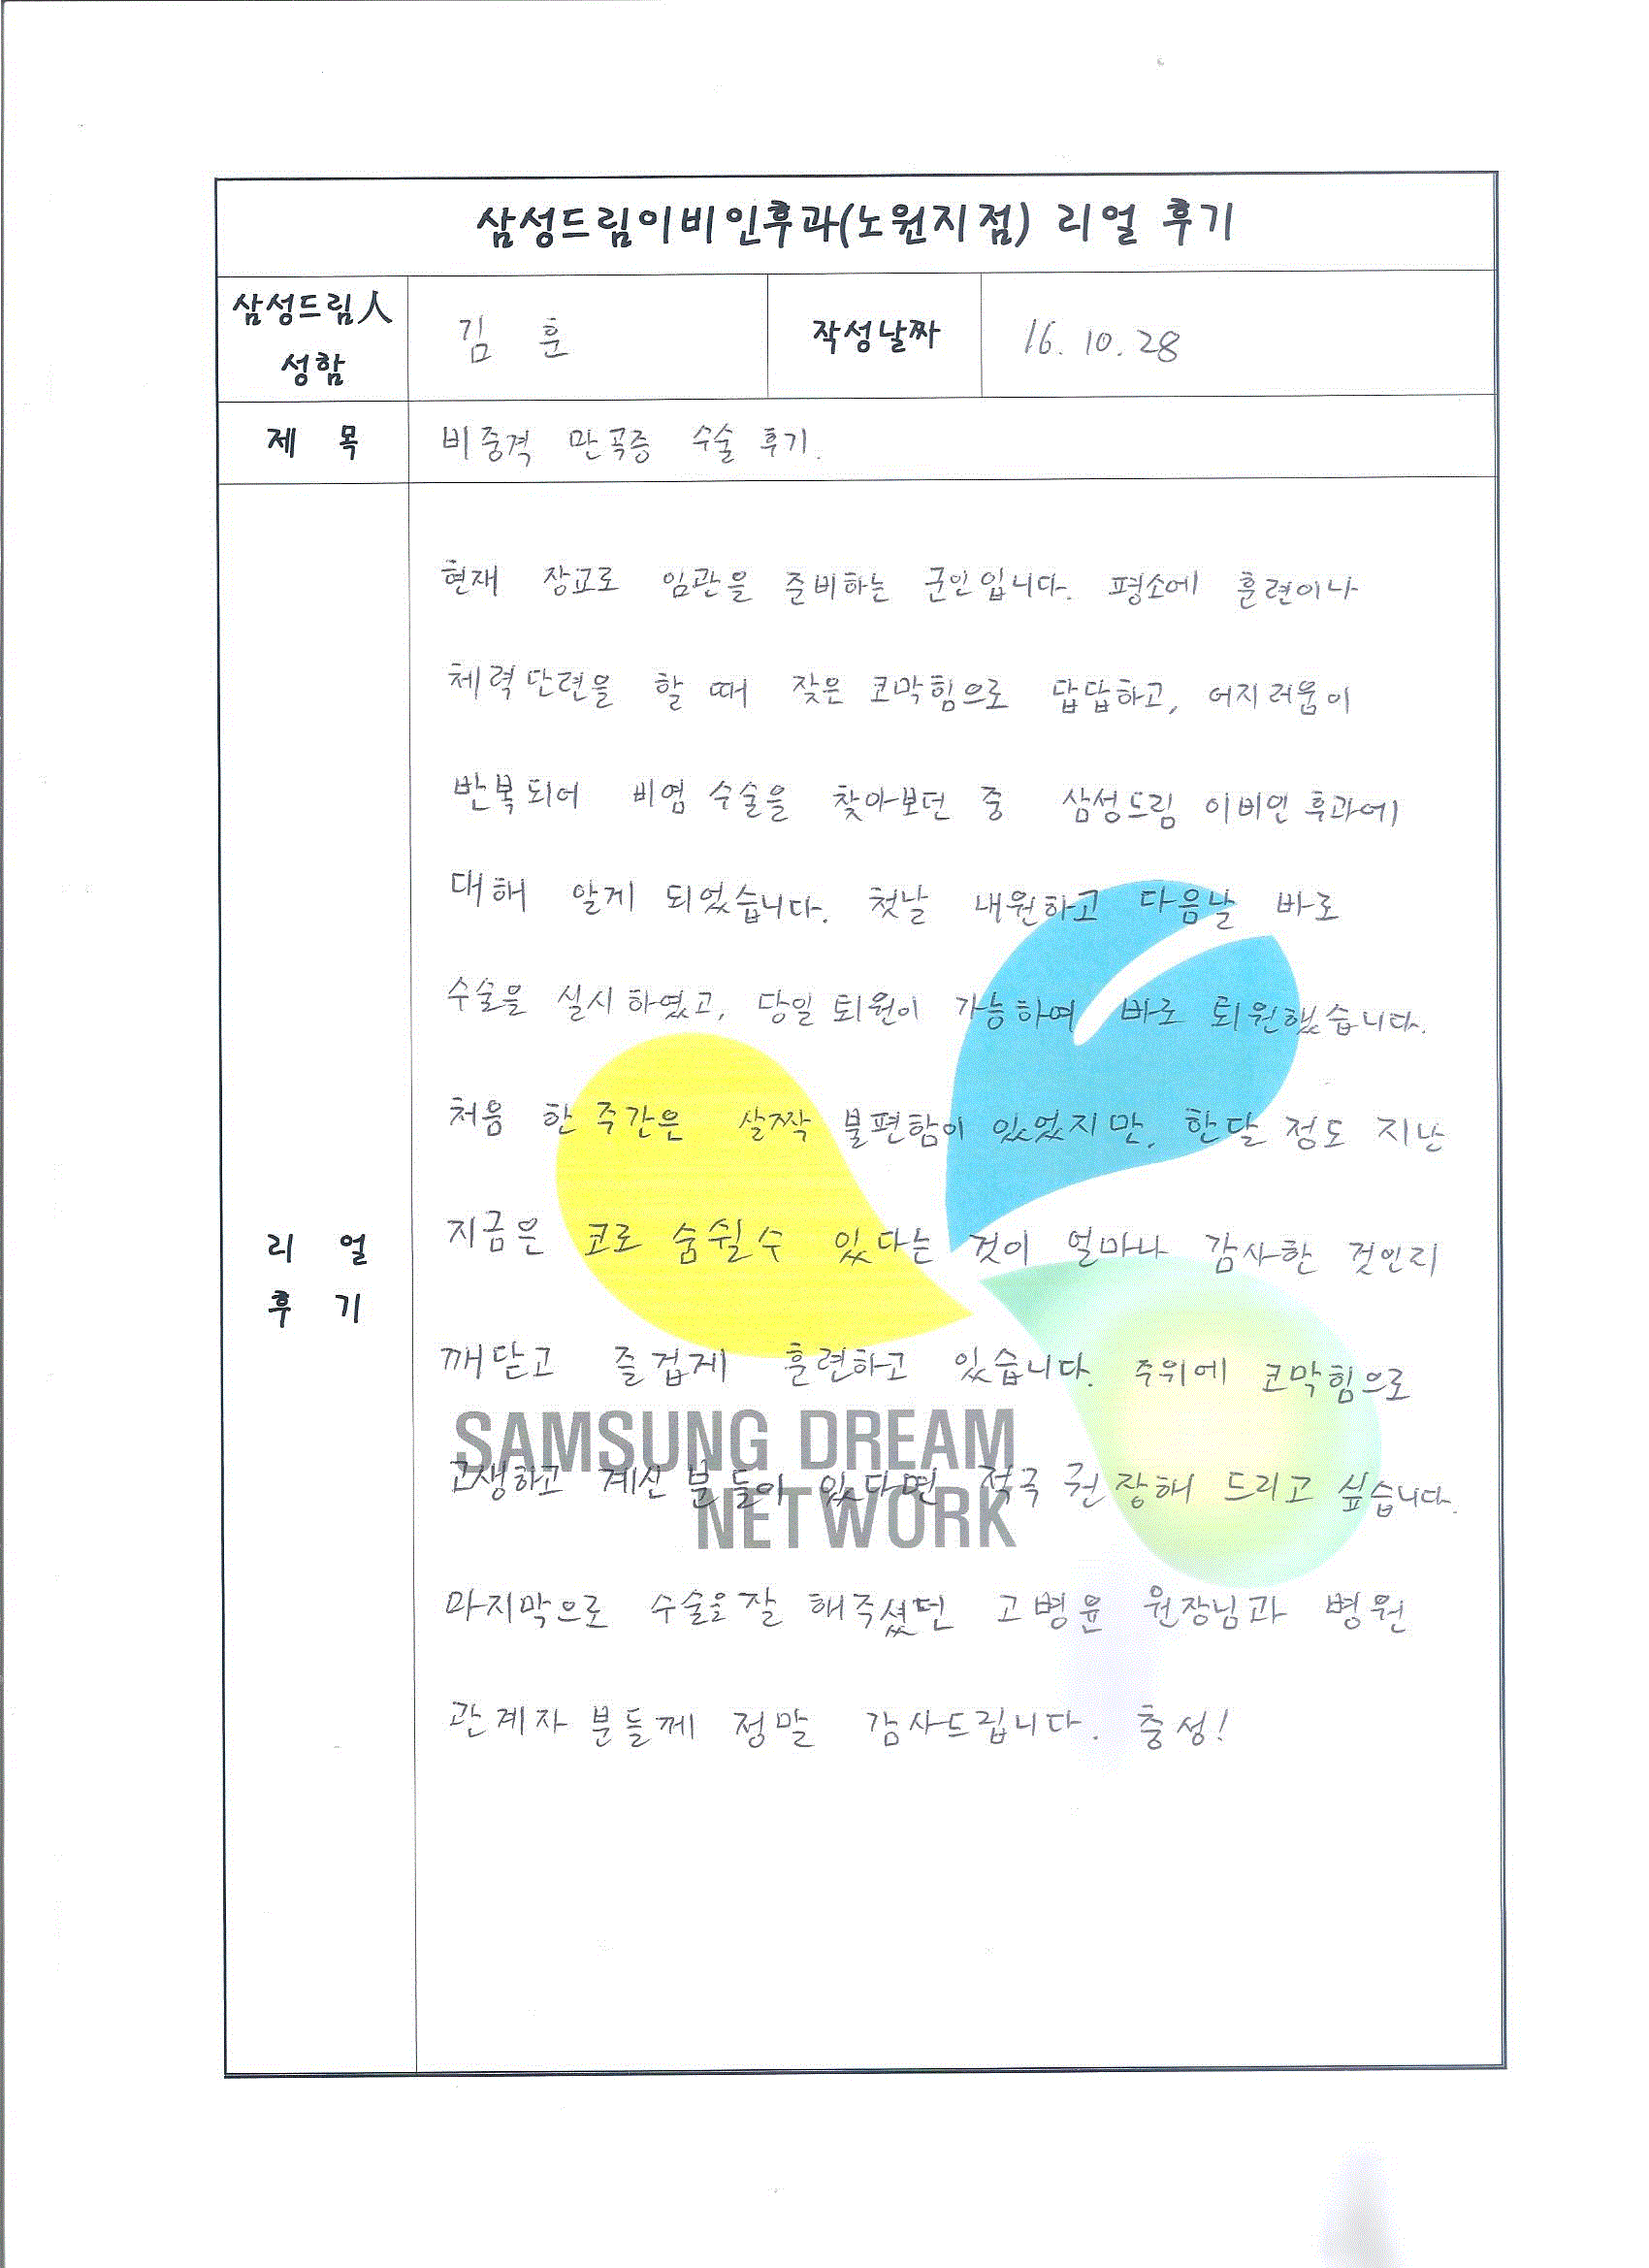 삼성드림이비인후과(노원지점) 리얼 후기
삼성드림人
성함
김 훈
작성날짜
16. 10. 28
제 목
비중격 만곡증 수술 후기.
리 얼
후 기
현재 장교로 임관을 준비하는 군인입니다. 평소에 훈련이나
체력단련을 할 때 잦은 코막힘으로 답답하고, 어지러움이
반복되어 비염 수술을 찾아보던 중 삼성드림 이비인후과에
대해 알게 되었습니다. 첫날 내원하고 다음날 바로
수술을 실시하였고, 당일 퇴원이 가능하여 바로 퇴원했습니다.
처음 한 주간은 살짝 불편함이 있었지만, 한달 정도 지난
지금은 코로 숨쉴수 있다는 것이 얼마나 감사한 것인지
깨닫고 즐겁게 훈련하고 있습니다. 주위에 코막힘으로
고생하고 계신 분들이 있다면 적극 권장해 드리고 싶습니다.
마지막으로 수술을 잘 해주셨던 고병윤 원장님과 병원
관계자 분들께 정말 감사드립니다. 충성!
SAMSUNG DREAM
NETWORK